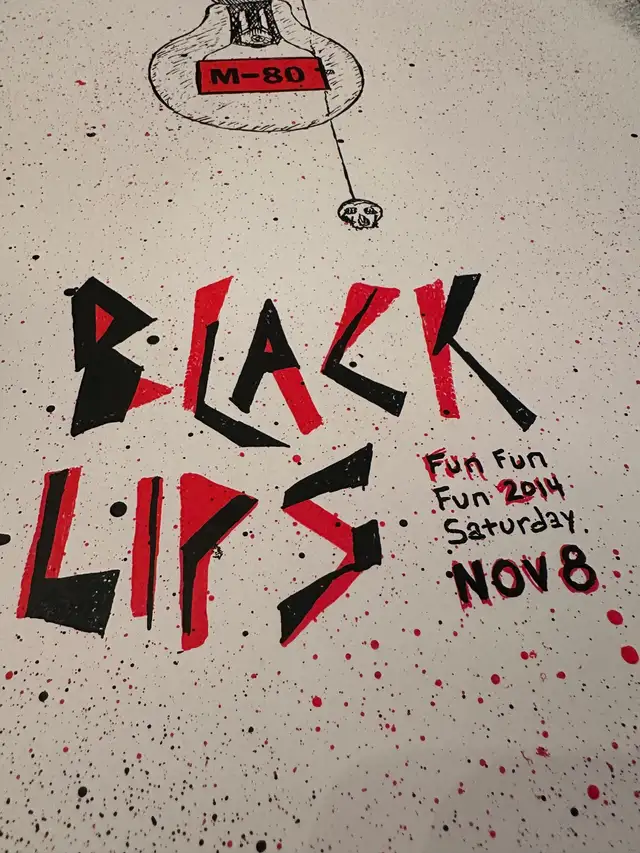 M-80
BLACK
LIPS
Fun Fun
Fun 2014
Saturday.
NOV 8